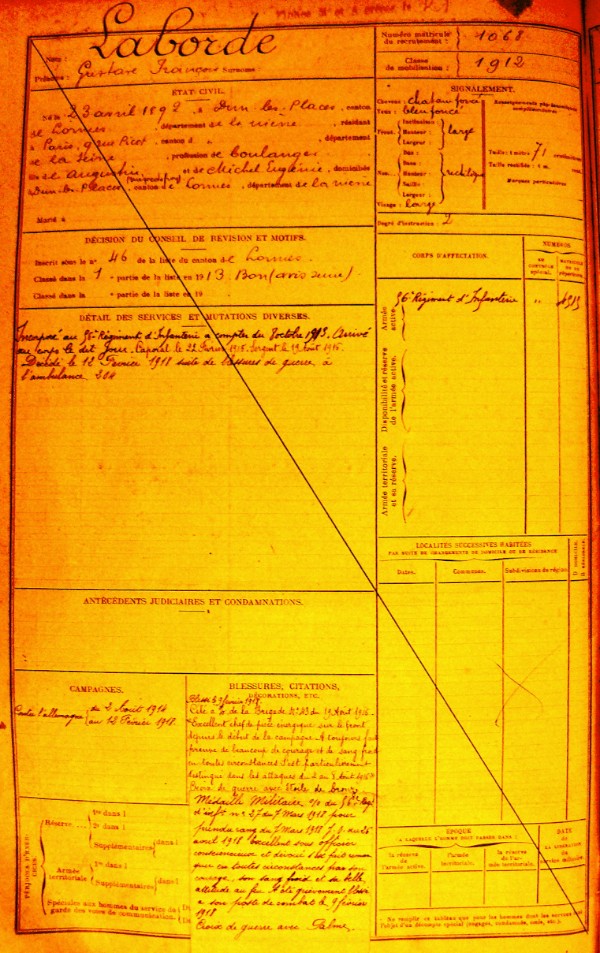 Laborde
Nom :
Prénoms : Gustave François Surnoms :
Numéro matricule du recrutement : 1068
Classe de mobilisation : 1912
ÉTAT CIVIL.
Né le 23 avril 1892, à Dun-les-Places, canton
de Lormes, département de la nièvre, résidant
à Paris, 9 rue Picot, canton d , département
de la Seine, profession de boulanger
fils de Augustin et de Michel Eugénie, domiciliés
à Dun-les-Places, canton de Lormes, département de la nièvre
Marié à
SIGNALEMENT.
Cheveux : chatain foncé
Yeux : bleu foncé
Front. Inclinaison : Hauteur : Largeur : large
Nez. Dos : Base : Hauteur : Saillie : Largeur : rectiligne
Visage : large
Renseignements physionomiques complémentaires :
Taille : 1 mètre 71 centimètres
Taille rectifiée : 1 m.
Marques particulières
Degré d'instruction : 2
DÉCISION DU CONSEIL DE RÉVISION ET MOTIFS.
Inscrit sous le n° 46 de la liste du canton de Lormes.
Classé dans la 1 e partie de la liste en 1913 Bon (avis Seine).
Classé dans la e partie de la liste en 19
CORPS D'AFFECTATION.
NUMÉROS
AU CONTRÔLE spécial.
MATRICULE OU AU RÉPERTOIRE.
Armée active.
56e Régiment d'Infanterie
Disponibilité et réserve de l'armée active.
Armée territoriale et sa réserve.
DÉTAIL DES SERVICES ET MUTATIONS DIVERSES.
Incorporé au 56e Régiment d'Infanterie à compter du 8 octobre 1913. Arrivé
au corps le dit jour. Caporal le 22 Février 1915. Sergent le 19 Août 1915.
Décédé le 12 Février 1918 suite de blessures de guerre à
l'ambulance
LOCALITÉS SUCCESSIVES HABITÉES
PAR SUITE DE CHANGEMENTS DE DOMICILE OU DE RÉSIDENCE
Dates.
Communes.
Subdivisions de région.
D. DOMICILE. R. RÉSIDENCE.
ANTÉCÉDENTS JUDICIAIRES ET CONDAMNATIONS.
CAMPAGNES.
Contre l'allemagne du 2 Août 1914
au 12 Février 1918.
BLESSURES, CITATIONS,
DÉCORATIONS, ETC.
Blessé le 9 février 1918.
Cité à l'o de la Brigade N° 43 du 19 Août 1916
Excellent chef de pièce énergique sur le front
depuis le début de la campagne. A toujours fait
preuve de beaucoup de courage et de sang froid
en toutes circonstances s'est particulièrement
distingué dans les attaques du 2 au 5 Août 1916
Croix de guerre avec étoile de bronze
Médaille Militaire o/o du 56e Régt
d'Infie n° 27 du 7 Mars 1918 pour
prendre rang du 7 Mars 1918 J.O. du 26
août 1918 excellent sous officier
consciencieux et dévoué s'est fait remar
quer en toutes circonstances par son
courage, son sang froid et sa belle
attitude au feu. A été grièvement blessé
à son poste de combat le 9 février
1918
Croix de guerre avec Palme.
PÉRIODES D'EXERCICES.
Réserve.
1re dans l
2e dans l
Supplémentaire dans l
Armée territoriale.
1re dans l
Supplémentaires dans l
Spéciales aux hommes du service de garde des voies de communication.
ÉPOQUE
À LAQUELLE L'HOMME DOIT PASSER DANS :
la réserve de l'armée active.
l'armée territoriale.
la réserve de l'armée territoriale.
DATE
DE LA LIBÉRATION du service militaire.